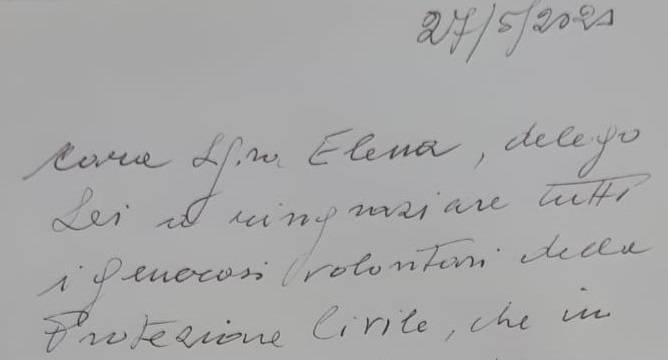 27/5/2021
Cara Sig.ra Elena, delego
Lei a ringraziare tutti
i generosi volontari della
Protezione Civile, che in